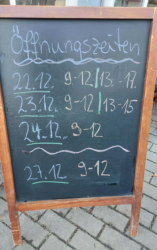 Öffnungszeiten
22.12. 9-12/13.-17.
23.12. 9-12/13-15
24.12. 9-12
27.12. 9-12